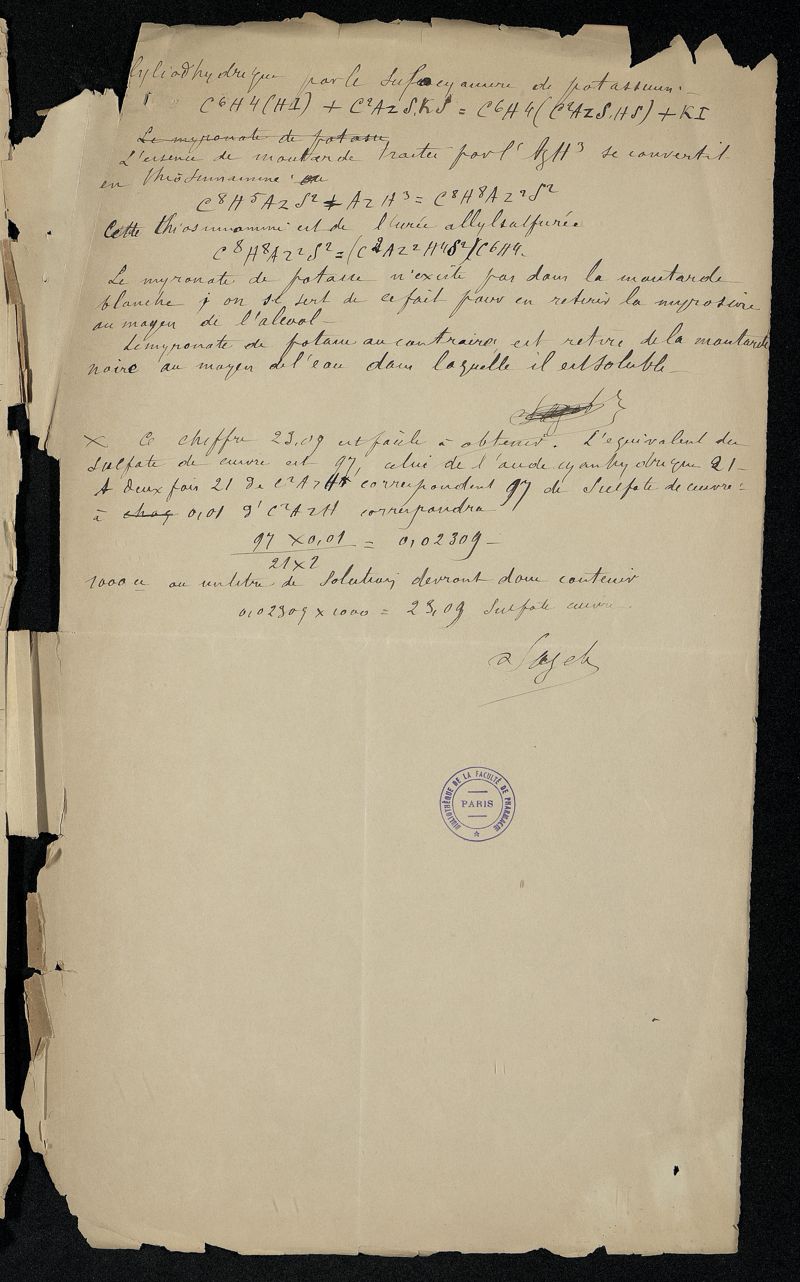 lyliodhydrique par le sulfocyanure de potassium.
C⁶H⁴(HI) + C²AzS.KS = C⁶H⁴(C²AzS.HS) + KI
Le myronate de potasse
L'essence de moutarde traitée par l'AzH³ se convertit
en thiosinnamine
C⁸H⁵AzS² + AzH³ = C⁸H⁸Az²S²
Cette thiosinnamine est de l'urée allylsulfurée
C⁸H⁸Az²S² = (C²Az²H⁴S²)C⁶H⁴.
Le myronate de potasse n'existe pas dans la moutarde
blanche ; on se sert de ce fait pour en retirer la myrosine
au moyen de l'alcool –
Le myronate de potasse au contraire est retiré de la moutarde
noire au moyen de l'eau dans laquelle il est soluble –
× Ce chiffre 23,09 est facile à obtenir. L'équivalent du
sulfate de cuivre est 97, celui de l'acide cyanhydrique 21 –
A deux fois 21 de C²AzH correspondent 97 de sulfate de cuivre :
à 0,01 d'C²AzH correspondra
97 × 0,01 / 21 × 2 = 0,02309 –
1000 cc ou un litre de solution devront donc contenir
0,02309 × 1000 = 23,09 sulfate cuivre.
BIBLIOTHÈQUE DE LA FACULTÉ DE PHARMACIE
PARIS